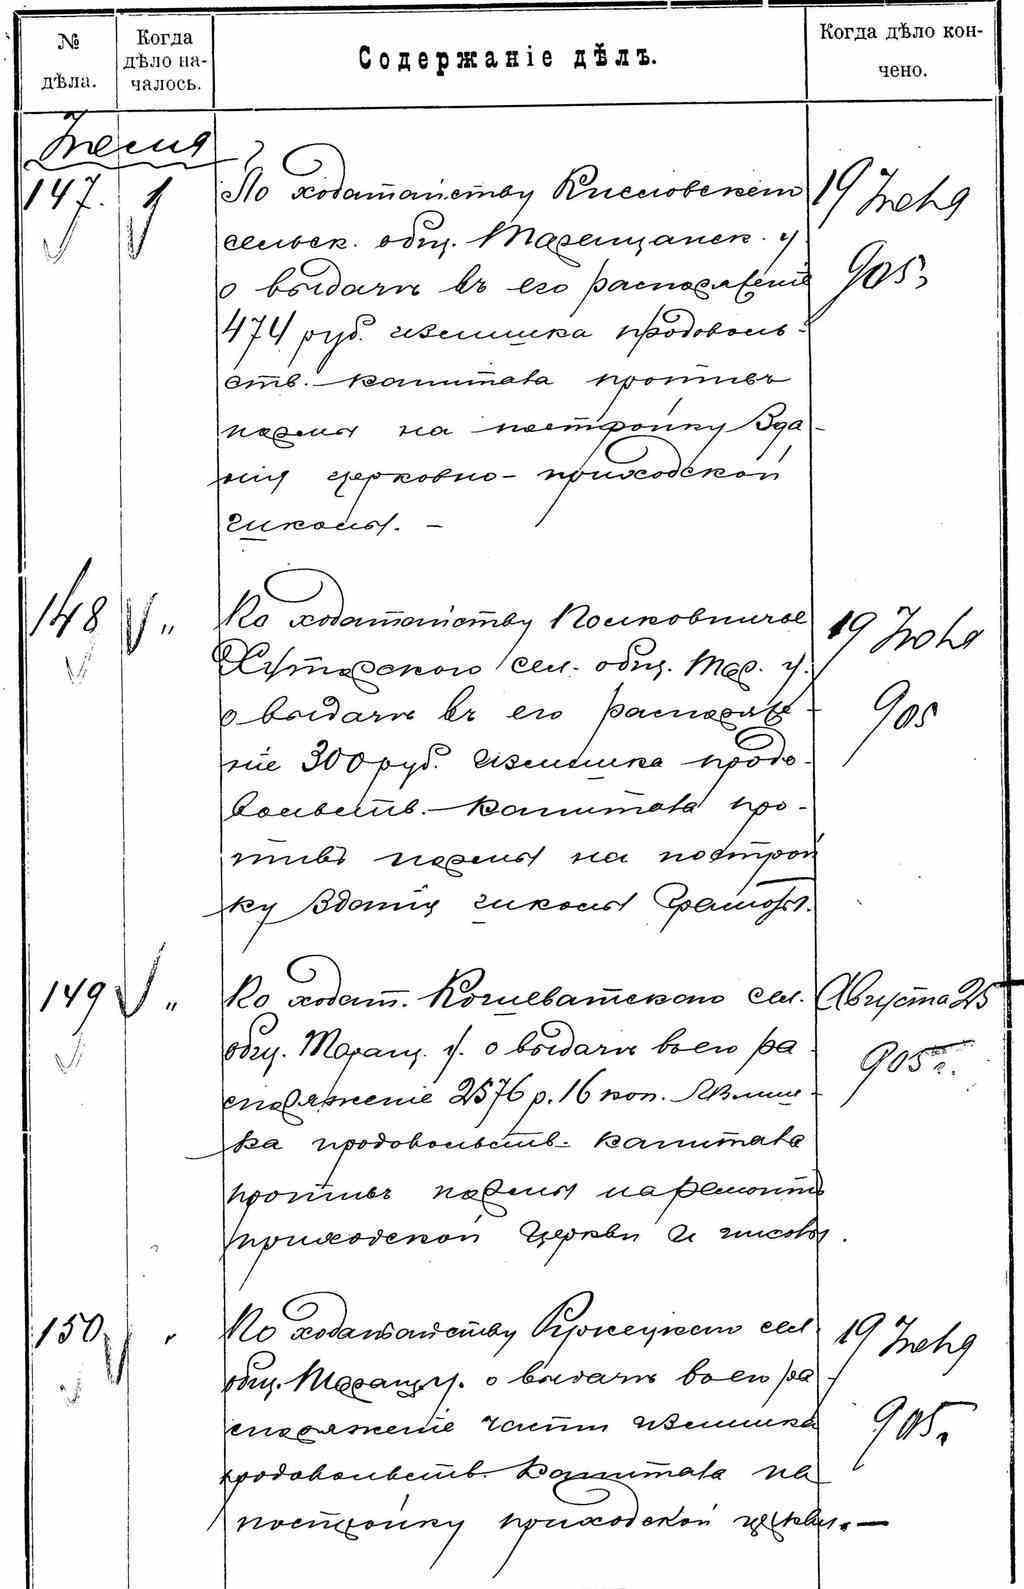 № дѣла.
Когда дѣло на-чалось.
Содержаніе дѣлъ.
Когда дѣло кон-чено.
147. 1
По ходатайству Кисловскаго
сельск. общ. Таращанск. у.
о выдачѣ въ его распоряженіе
474 руб. излишка продоволь-
ств. капитала противъ
нормы на постройку зда-
нія церковно-приходской
школы. —
19 Іюня
905
148 "
По ходатайству Полковничье
Хуторского сел. общ. Тар. у.
о выдачѣ въ его распоряже-
ніе 300 руб. излишка продо-
вольств. капитала про-
тивъ нормы на построй
ку зданія школы грамоты.
19 Іюня
905
149 "
По ходат. сел.
общ. Таращ. у. о выдачѣ въ его ра
споряженіе 2576 р. 16 коп. излиш-
ка продовольств. капитала
противъ нормы на ремонтъ
приходской церкви и школы.
Августа 25
905 г.
150 "
По ходатайству сел.
общ. Таращ. у. о выдачѣ въ его ра-
споряженіе части излишка
продовольств. капитала на
постройку приходской церкви. —
19 Іюня
905